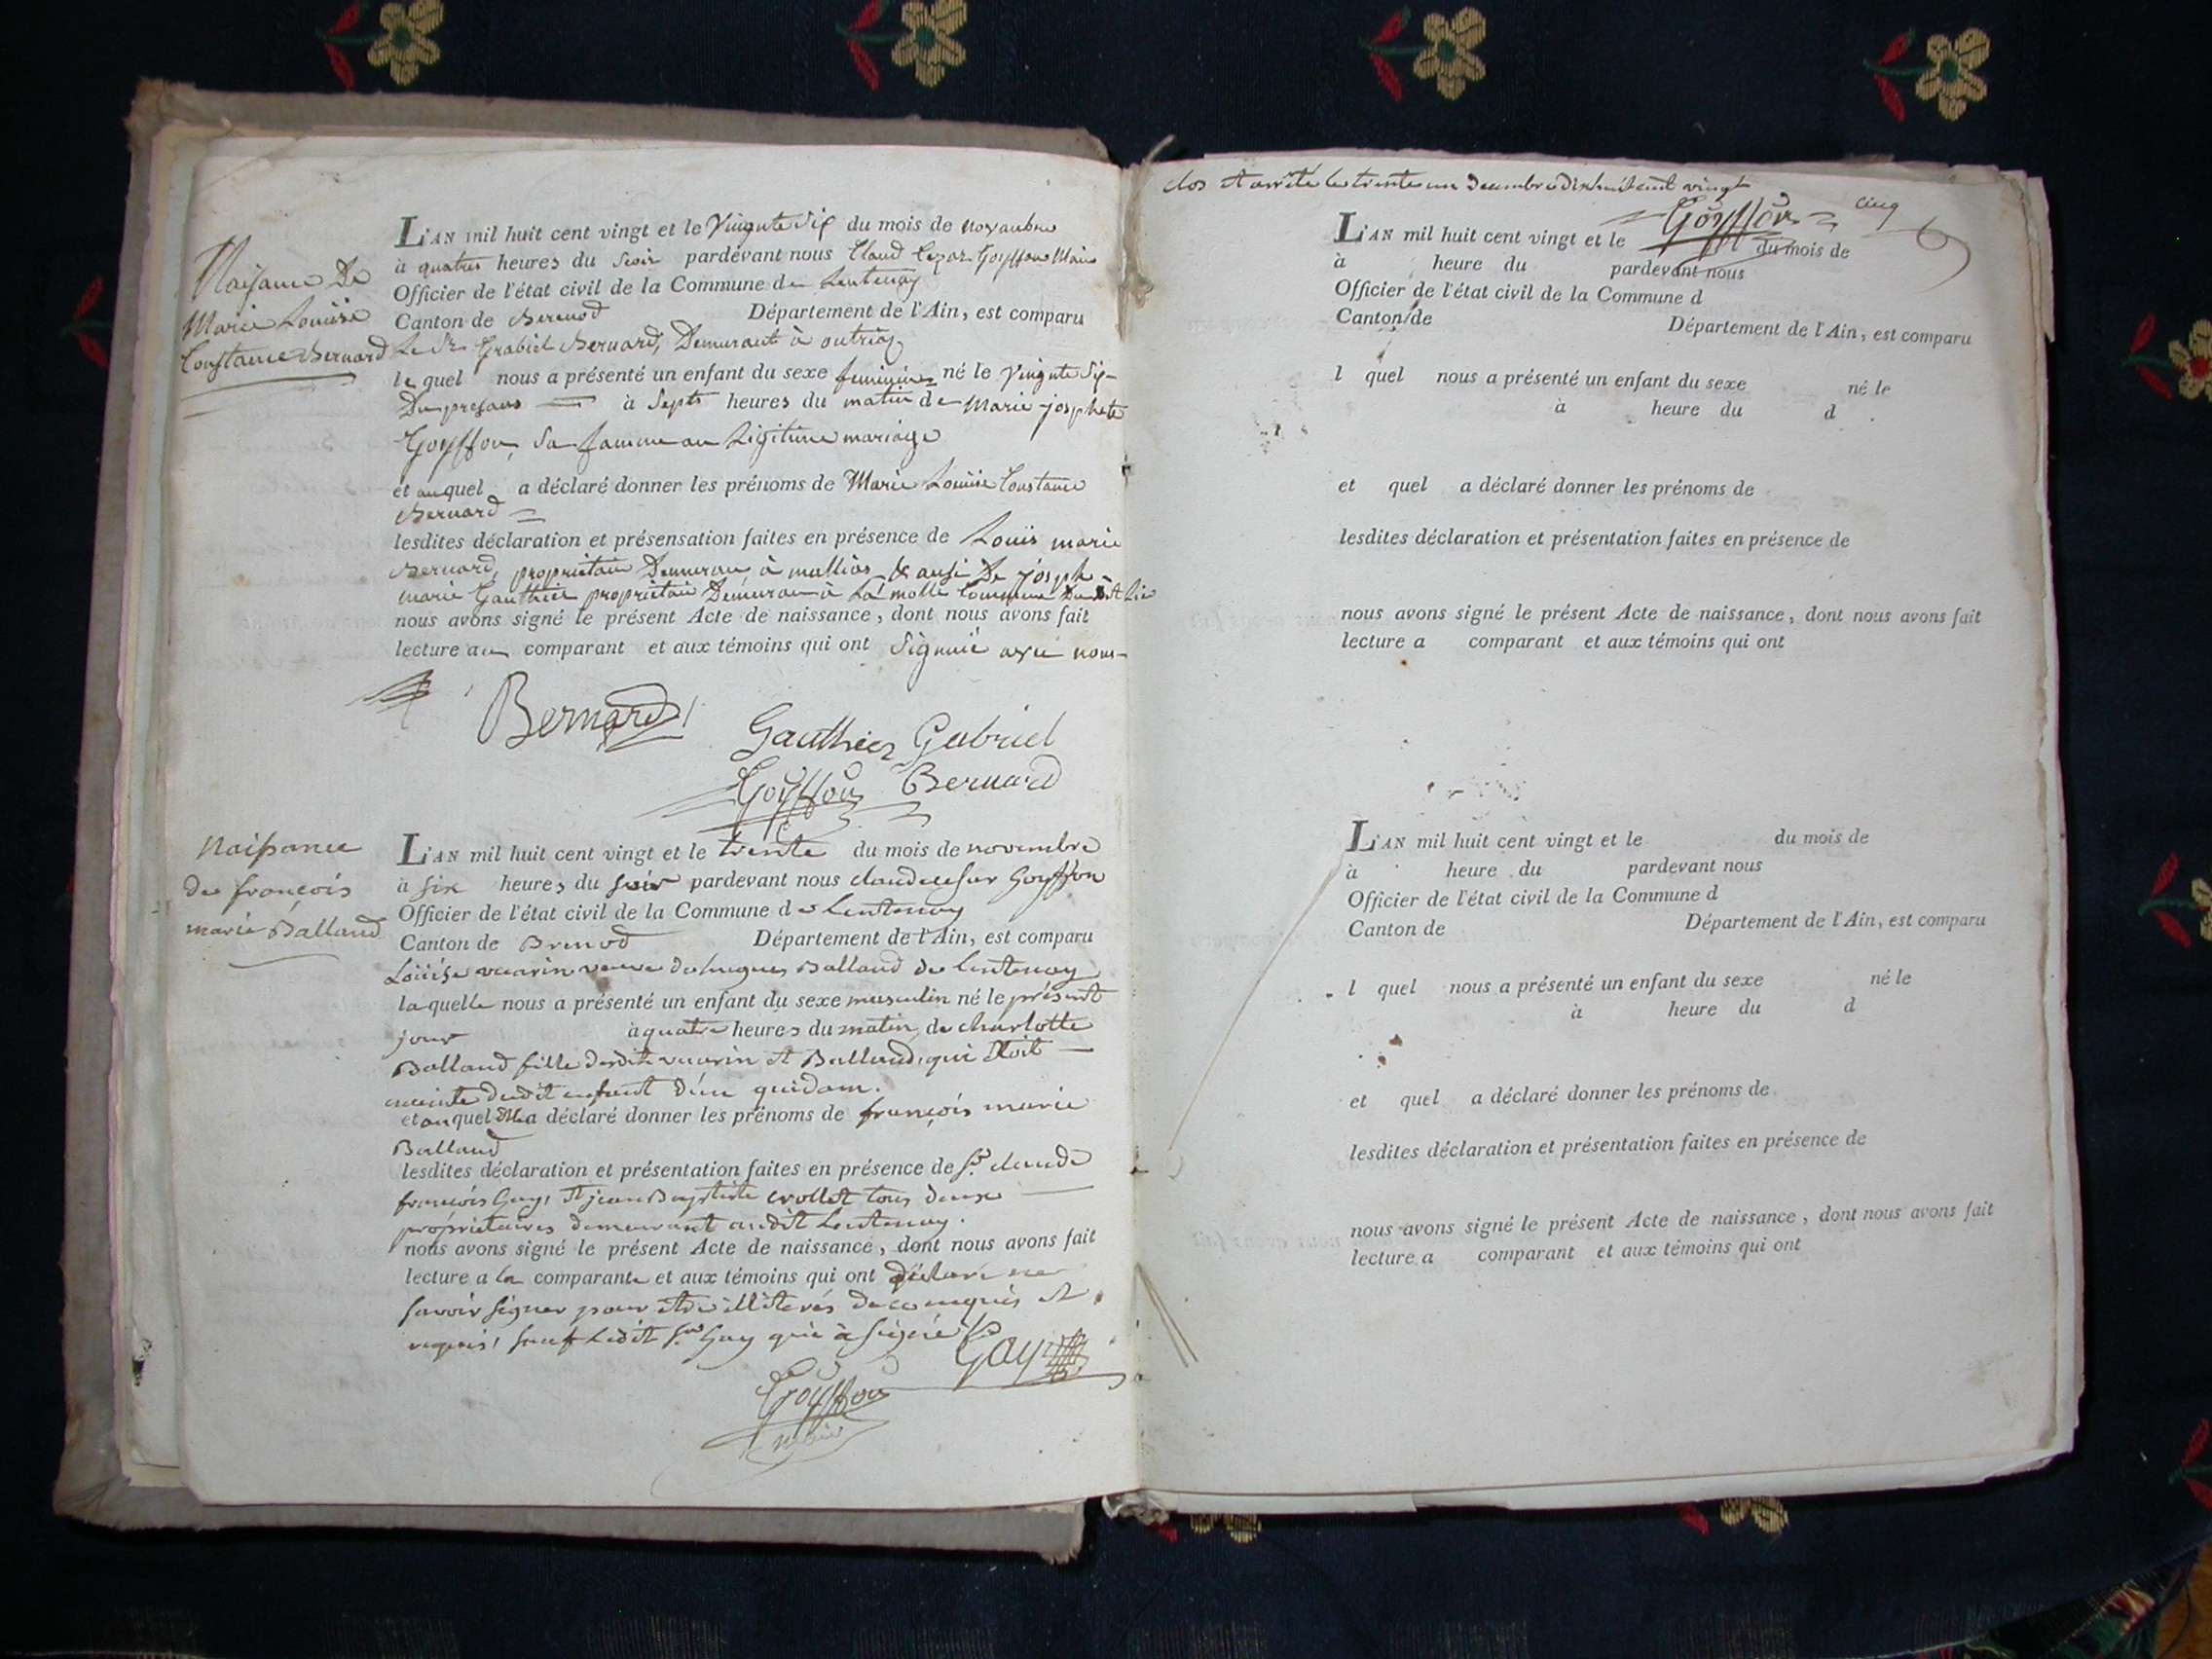 Naissance De
Marie Louïse
Constance Bernard
L'AN mil huit cent vingt et le Vingnte Six du mois de novanbre
à quatres heures du Soir pardevant nous Claud Cezar Goyffon Maire
Officier de l'état civil de la Commune de Lentenay
Canton de Brenod Département de l'Ain, est comparu
Le Sr Grabiel Bernard, Demurant à outriaz
le quel nous a présenté un enfant du sexe feminin né le Vingnte Six
Du presans à Septs heures du matin de Marie josphete
Goyffon, Sa famme an Ligitime mariage
et auquel a déclaré donner les prénoms de Marie Louïse Constance
Bernard
lesdites déclaration et présensation faites en présence de Louis marie
Bernard, proprietaire Demuran à
marie Gauthier proprietaire Demuran à La Commune
nous avons signé le présent Acte de naissance, dont nous avons fait
lecture au comparant et aux témoins qui ont Signnié avec nous
Bernard
Gauthier Gabriel
Goyffon Bernard
Naissance
de françois
marie Balland
L'AN mil huit cent vingt et le trente du mois de novembre
à six heures du soir pardevant nous claude cesar Goyffon
Officier de l'état civil de la Commune de Lentenay
Canton de Brenod Département de l'Ain, est comparu
Loüise vuarin veuve de hugues Balland de Lentenay
laquelle nous a présenté un enfant du sexe masculin né le présent
jour à quatre heures du matin, de charlotte
Balland fille desdits vuarin et Balland, qui Etoit
enceinte dudit enfant d'un quidam.
et auquel Elle a déclaré donner les prénoms de françois marie
Balland
lesdites déclaration et présentation faites en présence de Sr claude
françois Gay, et jean Baptiste crollet tous deux
propriétaires demeurant audit Lentenay.
nous avons signé le présent Acte de naissance, dont nous avons fait
lecture a la comparante et aux témoins qui ont déclaré ne
savoir signer pour etre illiterés de ce enquis et
requis, sauf Ledit Sr Gay qui à signé
Gay
Goyffon
maire
clos et arrêté le trente un decembre dixhuit cent vingt
Goyffon
cinq
L'AN mil huit cent vingt et le du mois de
à heure du pardevant nous
Officier de l'état civil de la Commune d
Canton de Département de l'Ain, est comparu
l quel nous a présenté un enfant du sexe né le
à heure du d
et quel a déclaré donner les prénoms de
lesdites déclaration et présentation faites en présence de
nous avons signé le présent Acte de naissance, dont nous avons fait
lecture a comparant et aux témoins qui ont
L'AN mil huit cent vingt et le du mois de
à heure du pardevant nous
Officier de l'état civil de la Commune d
Canton de Département de l'Ain, est comparu
l quel nous a présenté un enfant du sexe né le
à heure du d
et quel a déclaré donner les prénoms de
lesdites déclaration et présentation faites en présence de
nous avons signé le présent Acte de naissance, dont nous avons fait
lecture a comparant et aux témoins qui ont